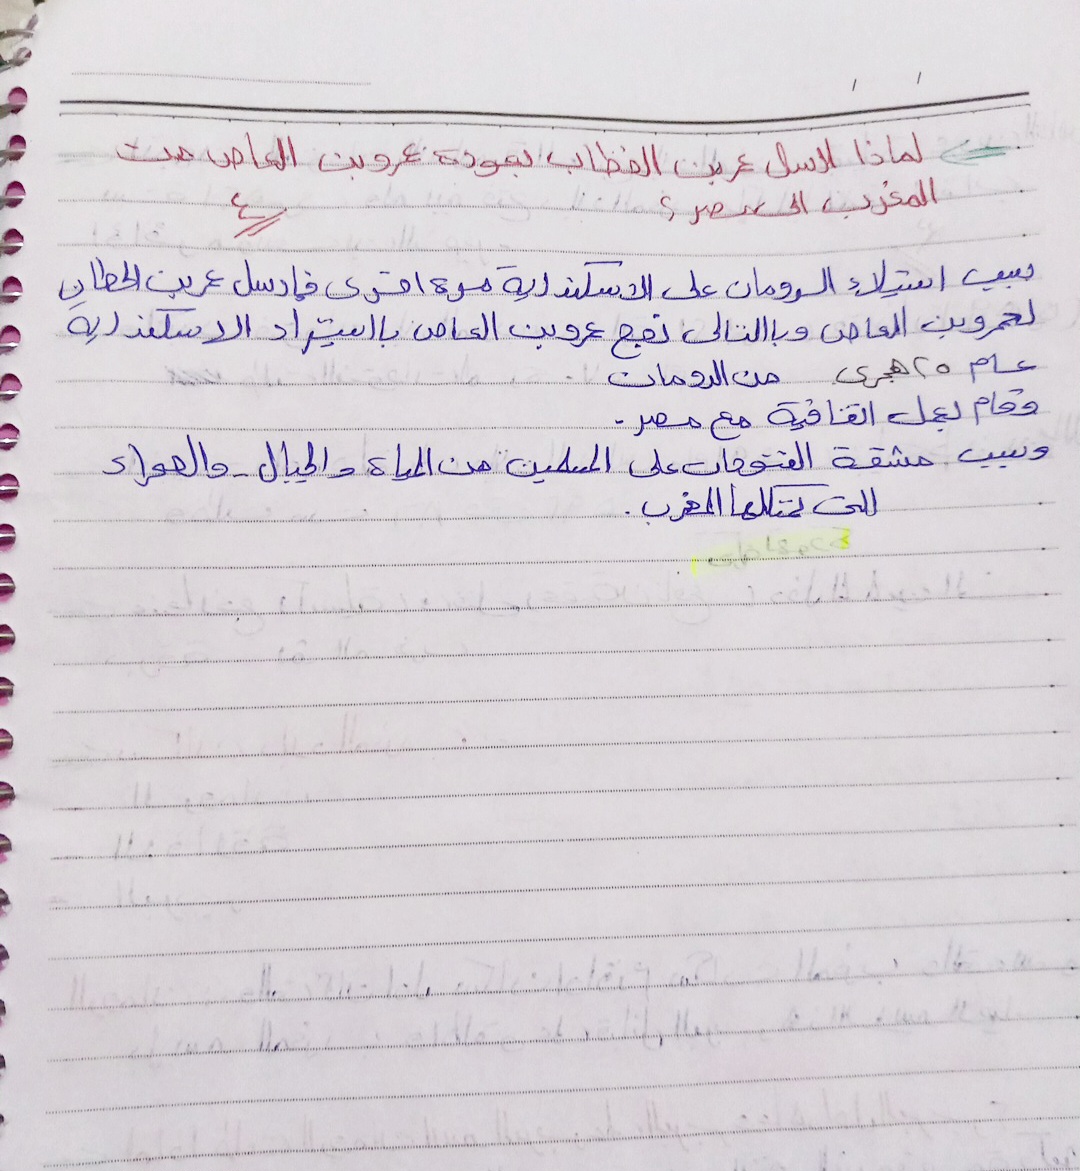 لماذا لارسل عمر بن الخطاب بعودة عمرو بن العاص من
المغرب الى مصر ؟ ٤
بسبب استيلاء الرومان على الاسكندرية مرة اخرى فارسل عمر بن الخطاب
لعمرو بن العاص وباالتالى نجح عمرو بن العاص باسترداد الاسكندرية
عام ٢٥ هجرى من الرومان
وقام بعمل اتفاقية مع مصر .
وبسبب مشقة الفتوحات على المسلمين من المياة والجبال - والصحراء
التى تمتلكها المغرب .